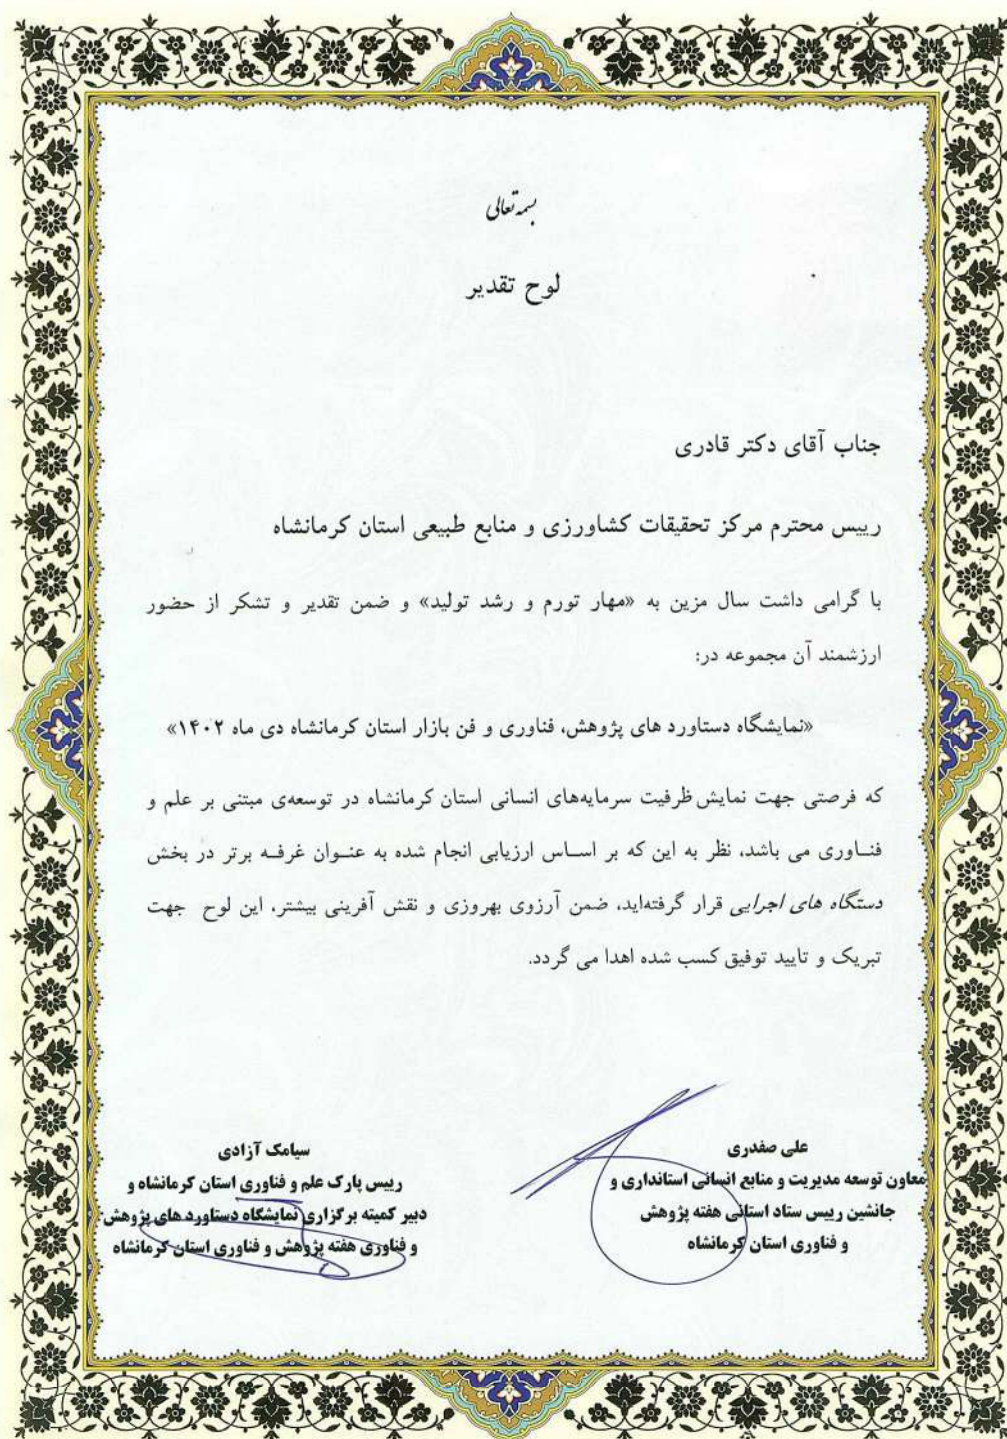 بسمه تعالی
لوح تقدیر
جناب آقای دکتر قادری
رییس محترم مرکز تحقیقات کشاورزی و منابع طبیعی استان کرمانشاه
با گرامی داشت سال مزین به «مهار تورم و رشد تولید» و ضمن تقدیر و تشکر از حضور
ارزشمند آن مجموعه در:
«نمایشگاه دستاورد های پژوهش، فناوری و فن بازار استان کرمانشاه دی ماه ۱۴۰۲»
که فرصتی جهت نمایش ظرفیت سرمایه‌های انسانی استان کرمانشاه در توسعه‌ی مبتنی بر علم و
فنــاوری می باشد، نظر به این که بر اســاس ارزیابی انجام شده به عنــوان غرفــه برتر در بخش
دستگاه های اجرایی قرار گرفته‌اید، ضمن آرزوی بهروزی و نقش آفرینی بیشتر، این لوح جهت
تبریک و تایید توفیق کسب شده اهدا می گردد.
علی صفدری
معاون توسعه مدیریت و منابع انسانی استانداری و
جانشین رییس ستاد استانی هفته پژوهش
و فناوری استان کرمانشاه
سیامک آزادی
رییس پارک علم و فناوری استان کرمانشاه و
دبیر کمیته برگزاری نمایشگاه دستاورد های پژوهش
و فناوری هفته پژوهش و فناوری استان کرمانشاه